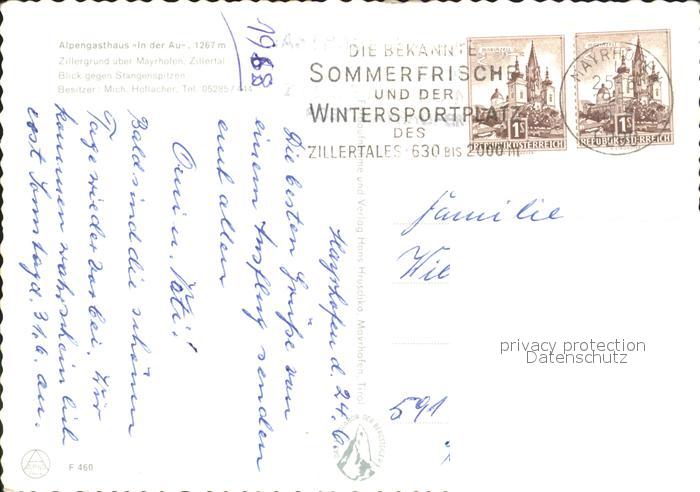 Alpengasthaus »In der Au«, 1267 m
Zillergrund über Mayrhofen, Zillertal
Blick gegen Stangenspitzen
Besitzer: Mich. Hoflacher, Tel. 05285/
1968
DIE BEKANNTE
SOMMERFRISCHE
UND DER
WINTERSPORTPLATZ
DES
ZILLERTALES · 630 BIS 2000 m
MARIAZELL
1s
REPUBLIK ÖSTERREICH
1s
REPUBLIK ÖSTERREICH
Mayrhofen d. 24.6.
Die besten Grüße von
einem Ausflug senden
euch allen
Omi u.
Bald sind die schönen
Tage wieder vorbei. Wir
kommen wahrscheinlich
erst Sonntag d. 31.6. an.
und Verlag Hans Hruschka, Mayrhofen, Tirol
Familie
Wie
591
privacy protection
Datenschutz
F 460